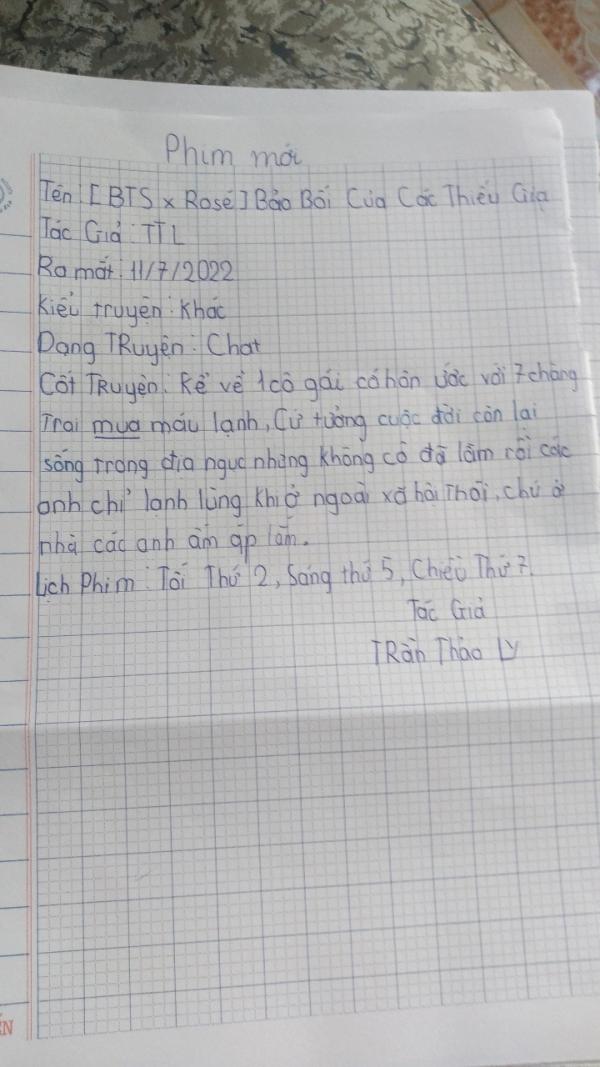 Phim mới
Tên [BTS x Rosé] Bảo Bối Của Các Thiếu Gia
Tác Giả : TTL
Ra mắt : 11/7/2022
Kiểu truyện : Khác
Dạng TRuyện : Chat
Cốt TRuyện : Kể về 1 cô gái có hôn ước với 7 chàng
Trai mua máu lạnh, Cứ tưởng cuộc đời còn lại
sống trong địa ngục nhưng không cô đã lầm rồi các
anh chỉ lạnh lùng khi ở ngoài xã hội Thôi, chứ ở
nhà các anh ấm áp lắm.
Lịch Phim : Tối Thứ 2, Sáng thứ 5, Chiều Thứ 7.
Tác Giả
TRần Thảo Ly